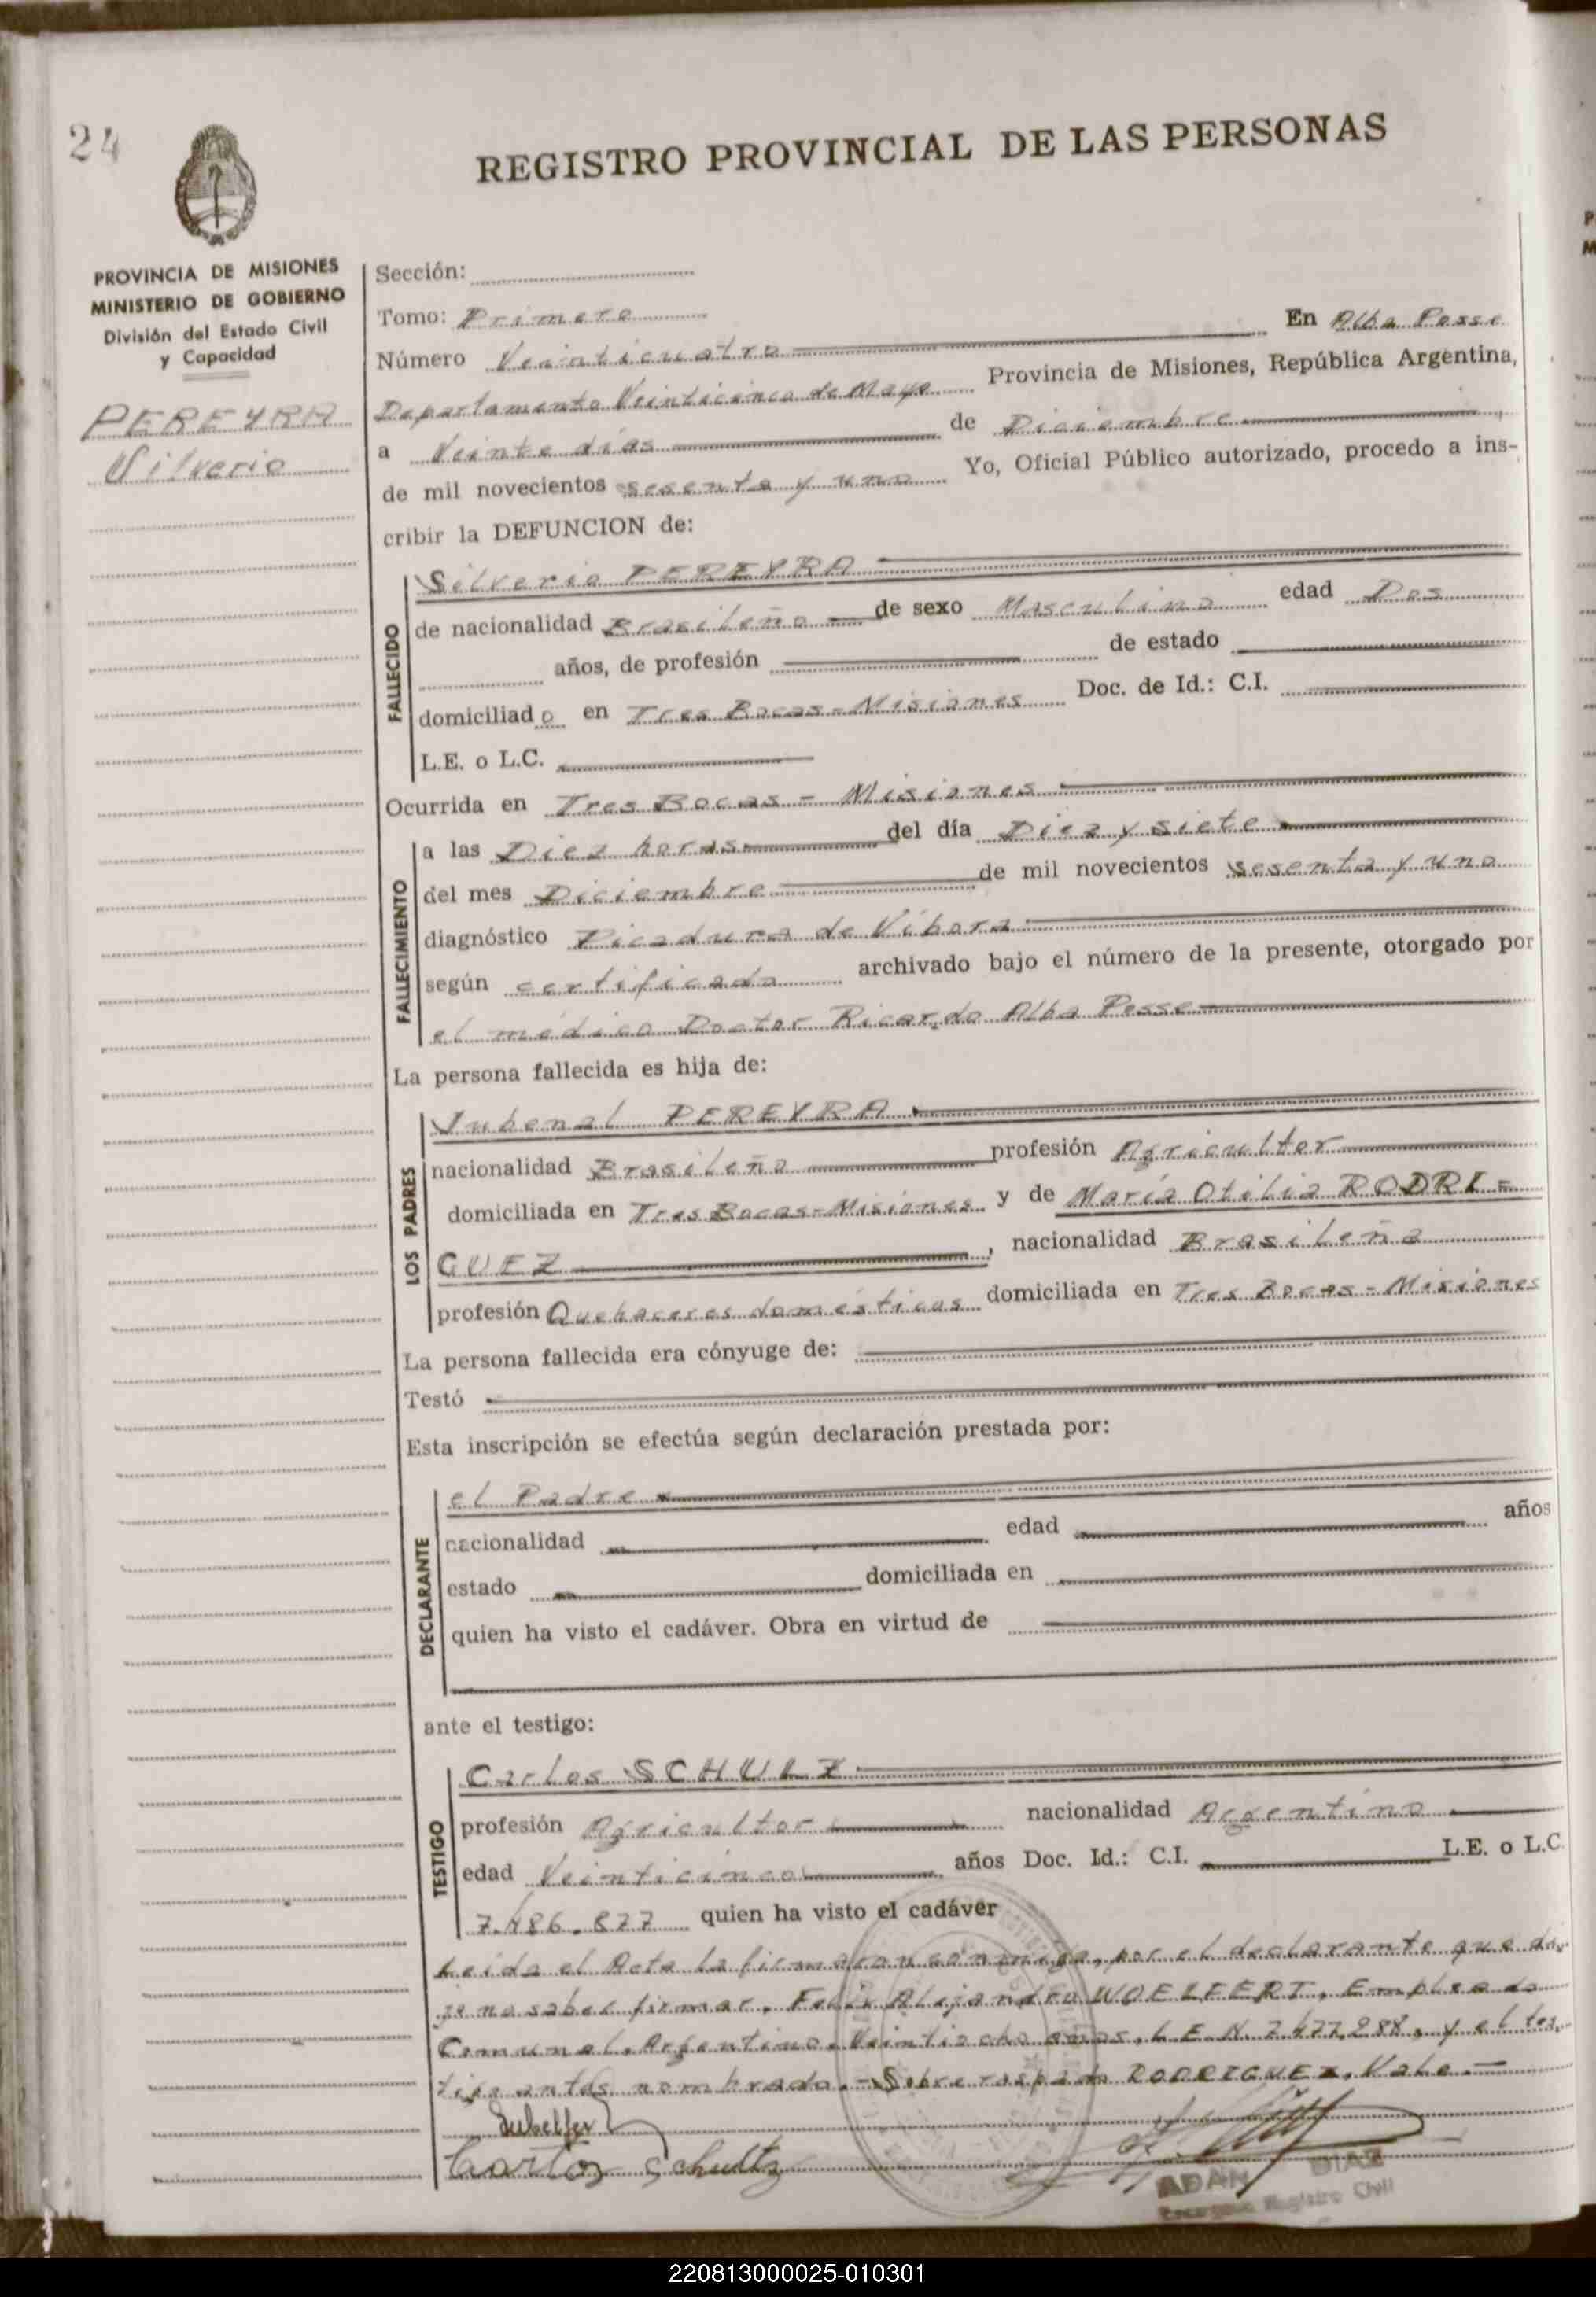 24
REGISTRO PROVINCIAL DE LAS PERSONAS
PROVINCIA DE MISIONES
MINISTERIO DE GOBIERNO
División del Estado Civil
y Capacidad
PEREYRA
Silverio
Sección:
Tomo: Primero
Número Veinticuatro En Alba Posse
Departamento Veinticinco de Mayo Provincia de Misiones, República Argentina,
a Veinte días de Diciembre
de mil novecientos sesenta y uno Yo, Oficial Público autorizado, procedo a ins-
cribir la DEFUNCION de:
FALLECIDO
Silverio PEREYRA
de nacionalidad Brasileño de sexo Masculino edad Dos
años, de profesión de estado
domiciliado en Tres Bocas - Misiones Doc. de Id.: C.I.
L.E. o L.C.
Ocurrida en Tres Bocas - Misiones
FALLECIMIENTO
a las Diez horas del día Diez y siete
del mes Diciembre de mil novecientos sesenta y uno
diagnóstico Picadura de Víbora
según certificado archivado bajo el número de la presente, otorgado por
el médico Doctor Ricardo Alba Posse
La persona fallecida es hija de:
LOS PADRES
Jubenal PEREYRA
nacionalidad Brasileño profesión Agricultor
domiciliada en Tres Bocas-Misiones y de María Otilia RODRI=
GUEZ, nacionalidad Brasileña
profesión Quehaceres domésticos domiciliada en Tres Bocas - Misiones
La persona fallecida era cónyuge de:
Testó
Esta inscripción se efectúa según declaración prestada por:
DECLARANTE
el Padre
nacionalidad edad años
estado domiciliada en
quien ha visto el cadáver. Obra en virtud de
ante el testigo:
TESTIGO
Carlos SCHULZ
profesión Agricultor nacionalidad Argentino
edad Veinticinco años Doc. Id.: C.I. L.E. o L.C.
7.486.877 quien ha visto el cadáver
Leída el Acta la firmaron conmigo, por el declarante que di-
jo no saber firmar, Felix Alejandro WOELFERT, Empleado
Comunal, Argentino, Veintiocho años, L.E.N. 7.477.288, y el tes-
tigo antes nombrado.- Sobre raspado RODRIGUEZ. Vale.-
Carlos Schultz
ADAN DIAZ
Encargado Registro Civil
220813000025-010301